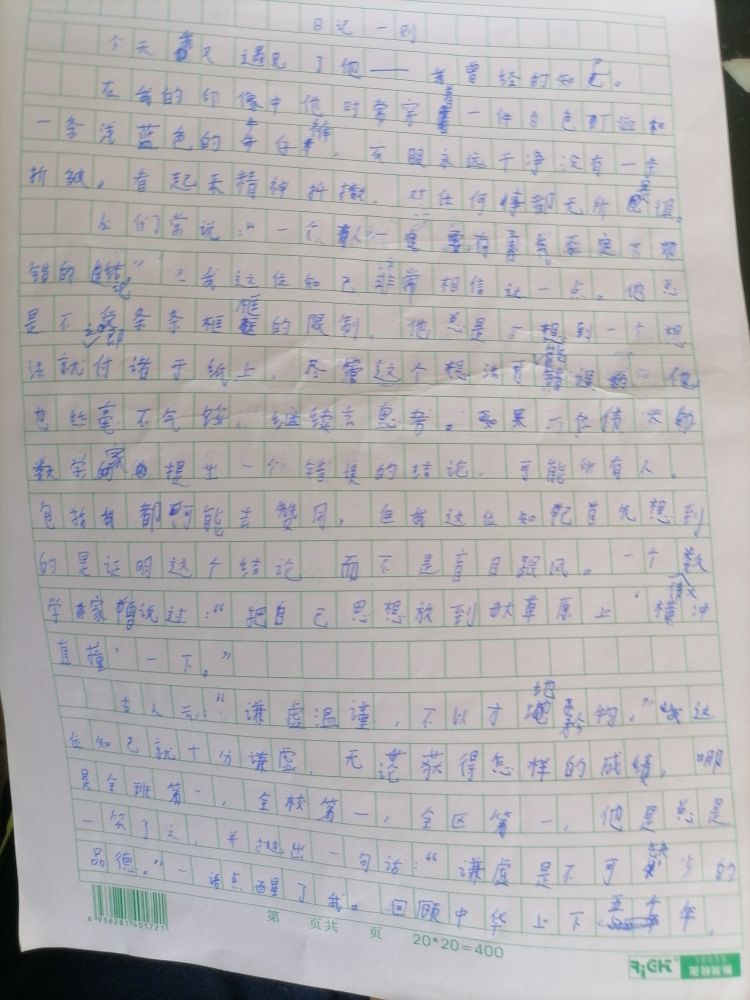 日记一则
今天我又遇见了他——我曾经的知己。
在我的印像中他时常穿着一件白色 和
一条浅蓝色的牛仔裤，衣服永远干净没有一条
折皱。看起来精神抖擞。对任何情都无所畏惧。
人们常说：“一个人一定要有
错的总结。”我这位知己非常相信这一点。他总
是不受条条框框的限制，他总是 想到一个想
法就付诸于纸上，尽管这个想法可能错误的，但
也丝毫不气馁，继续去思考。如果一位伟大的
数学家提出一个错误的结论，可能所有人。
包括我都可能去赞同，但我这位知己首先想到
的是证明这个结论 而不是盲目跟风。一个伟大数
学家曾说过：“把自己思想放到 草原上‘横冲
直撞’一下。”
古人云：“谦虚温谨，不以才地矜物。”我这
位知己就十分谦虚，无论获得怎样的成绩，哪
是全班第一，全校第一，全区第一，他总是
一笑了之，并抛出一句话：“谦虚是不可缺少的
品德。”一语点醒了我。回顾中华上下五千年，
6936281401721
第 页共 页 20*20=400
RiCH